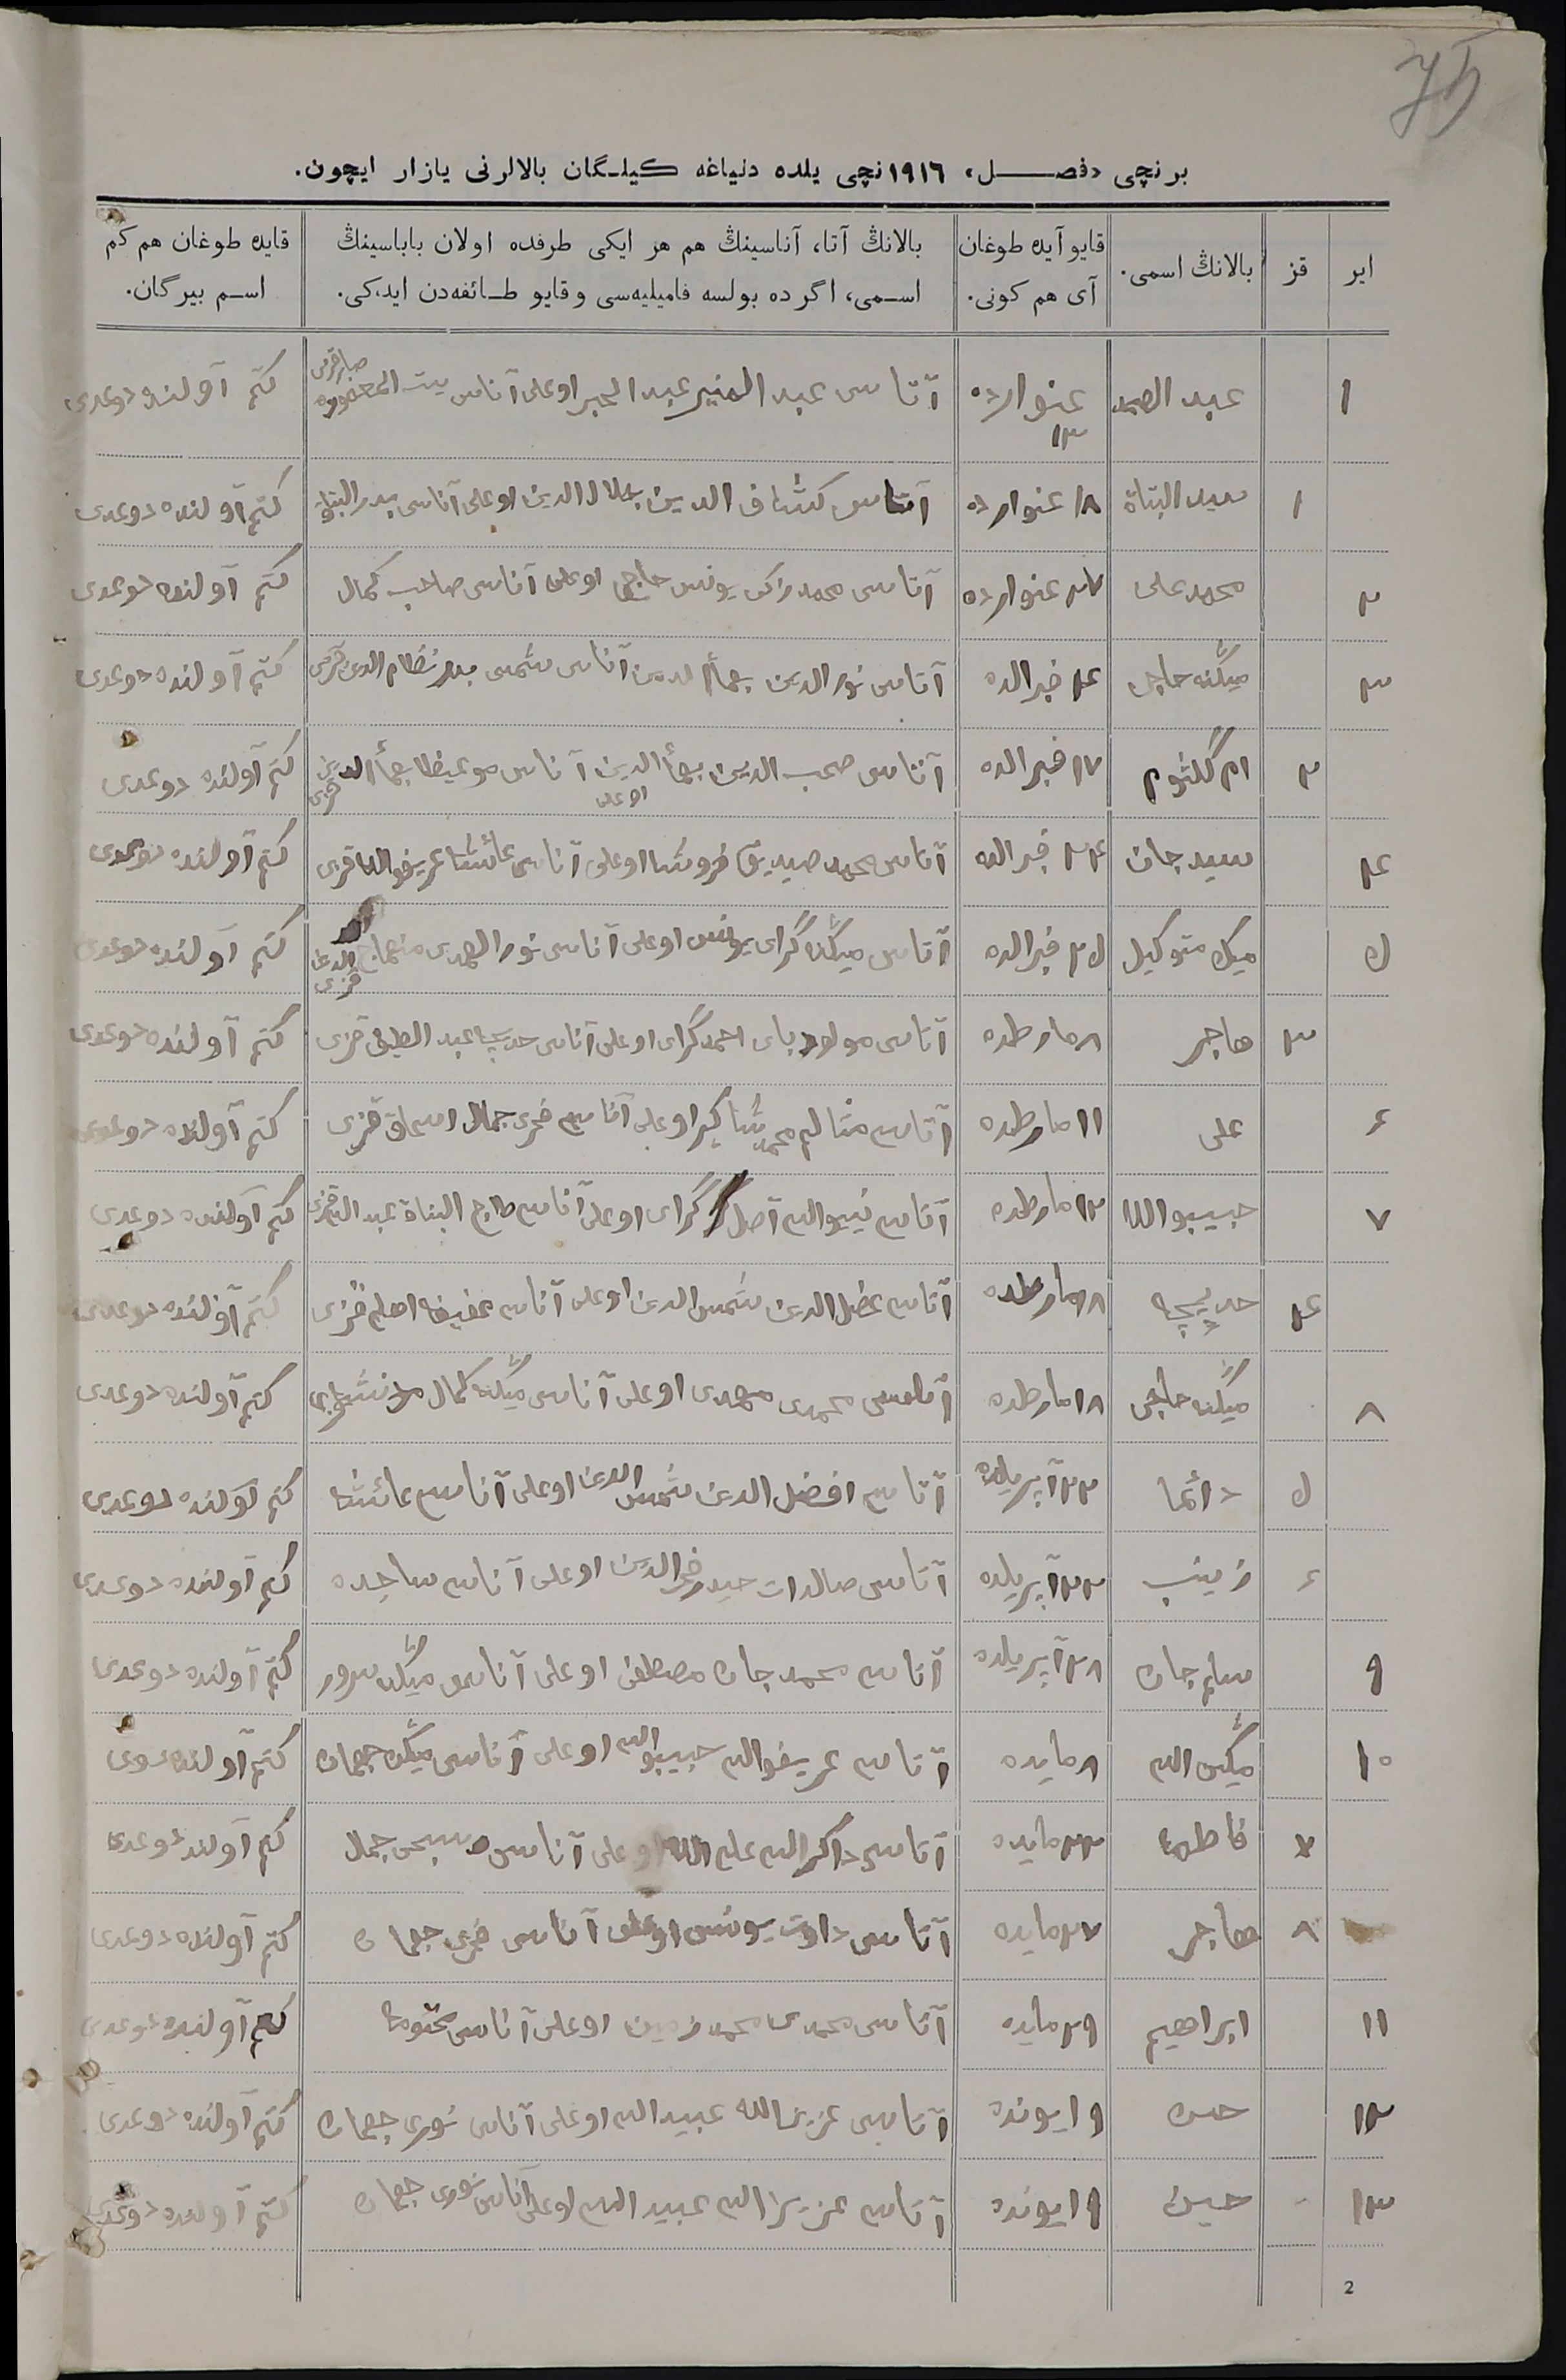 برنچی «فصل» ۱۹۱٦نچی یلده دنیاغه کیلگان بالالرنی یازار ایچون.
ایر
قز
بالانڭ اسمی.
قایو آیده طوغان
آی هم کونی.
بالانڭ آتا، آناسینڭ هم هر ایکی طرفده اولان باباسینڭ
اسمی، اگر ده بولسه فامیلیه‌سی و قایو طائفه‌دن ایدکی.
قایده طوغان هم کم
اسم بیرگان.
۱ عبد الصمد عنوارده ۱۳ آتاسی عبد المنیر عبد الجبر اوعلی آناسی کتم آولنده دوعدی
۱ ۱۸ عنوارده آتاسی کشاف الدین جلال الدین اوعلی آناسی بدر البناة کتم آولنده دوعدی
۲ محمد علی ۲۷ عنوارده آتاسی محمد زاکی یونس حاجی اوعلی آناسی صاحب کمال کتم آولنده دوعدی
۳ میڭنه حاجی ۴ فبرالده آتاسی نور الدین بهأ الدین آناسی شمسی بدر نظام الدین قزی کتم آولنده دوعدی
۲ ام گلثوم ۱۷ فبرالده آتاسی صحب الدین بهأ الدین اوعلی آناسی موعیظا بهأ الدین قزی کتم آولنده دوعدی
۴ سید جان ۲۴ فبرالده آتاسی محمد صیدیق اوعلی آناسی عائشا عریفوالله قزی کتم آولنده دوعدی
۵ میڭ متوکیل ۲۵ فبرالده آتاسی میڭله گرای یونس اوعلی آناسی نور الهدی منهاج الدین قزی کتم آولنده دوعدی
۳ هاجر ۸ مارطده آتاسی مولود بای احمد گرای اوعلی آناسی حدیچه عبد الطیف قزی کتم آولنده دوعدی
۶ علی ۱۱ مارطده آتاسی محمد شاکیر اوعلی آناسی فخری جمال اسحاق قزی کتم آولنده دوعدی
۷ حبیبوالله ۱۲ مارطده آتاسی آصل گرای اوعلی آناسی تاج البناة قزی کتم آولنده دوعدی
۴ حدیچه ۱۸ مارطده آتاسی شمس الدین اوعلی آناسی عفیفه قزی کتم آولنده دوعدی
۸ میڭنه حاجی ۱۸ مارطده آتاسی محمدی مهدی اوعلی آناسی میڭله کمال کتم آولنده دوعدی
۵ دائما ۲۲ آپریلده آتاسی افضل الدین شمس الدین اوعلی آناسی عائشا کتم آولنده دوعدی
۶ زینب ۲۳ آپریلده آتاسی حیدر فخر الدین اوعلی آناسی ساجده کتم آولنده دوعدی
۹ سلیم جان ۲۸ آپریلده آتاسی محمد جان مصطفی اوعلی آناسی میڭله سرور کتم آولنده دوعدی
۱۰ ۸ مایده آتاسی عریفوالله حبیبوالله اوعلی آناسی میڭله جهان کتم آولنده دوعدی
۷ فاطما ۲۳ مایده آتاسی ذاکرالله علیم الله اوعلی آناسی جمال کتم آولنده دوعدی
۸ هاجر ۲۷ مایده آتاسی داوت یونس اوعلی آناسی فخری جهان کتم آولنده دوعدی
۱۱ ابراهیم ۲۹ مایده آتاسی محمدی محمد زمین اوعلی آناسی کتم آولنده دوعدی
۱۲ حسن ۹ ایونده آتاسی عزیز الله عبید الله اوعلی آناسی نوری جهان کتم آولنده دوعدی
۱۳ حسین ۹ ایونده آتاسی عزیز الله عبید الله اوعلی آناسی نوری جهان کتم آولنده دوعدی
2